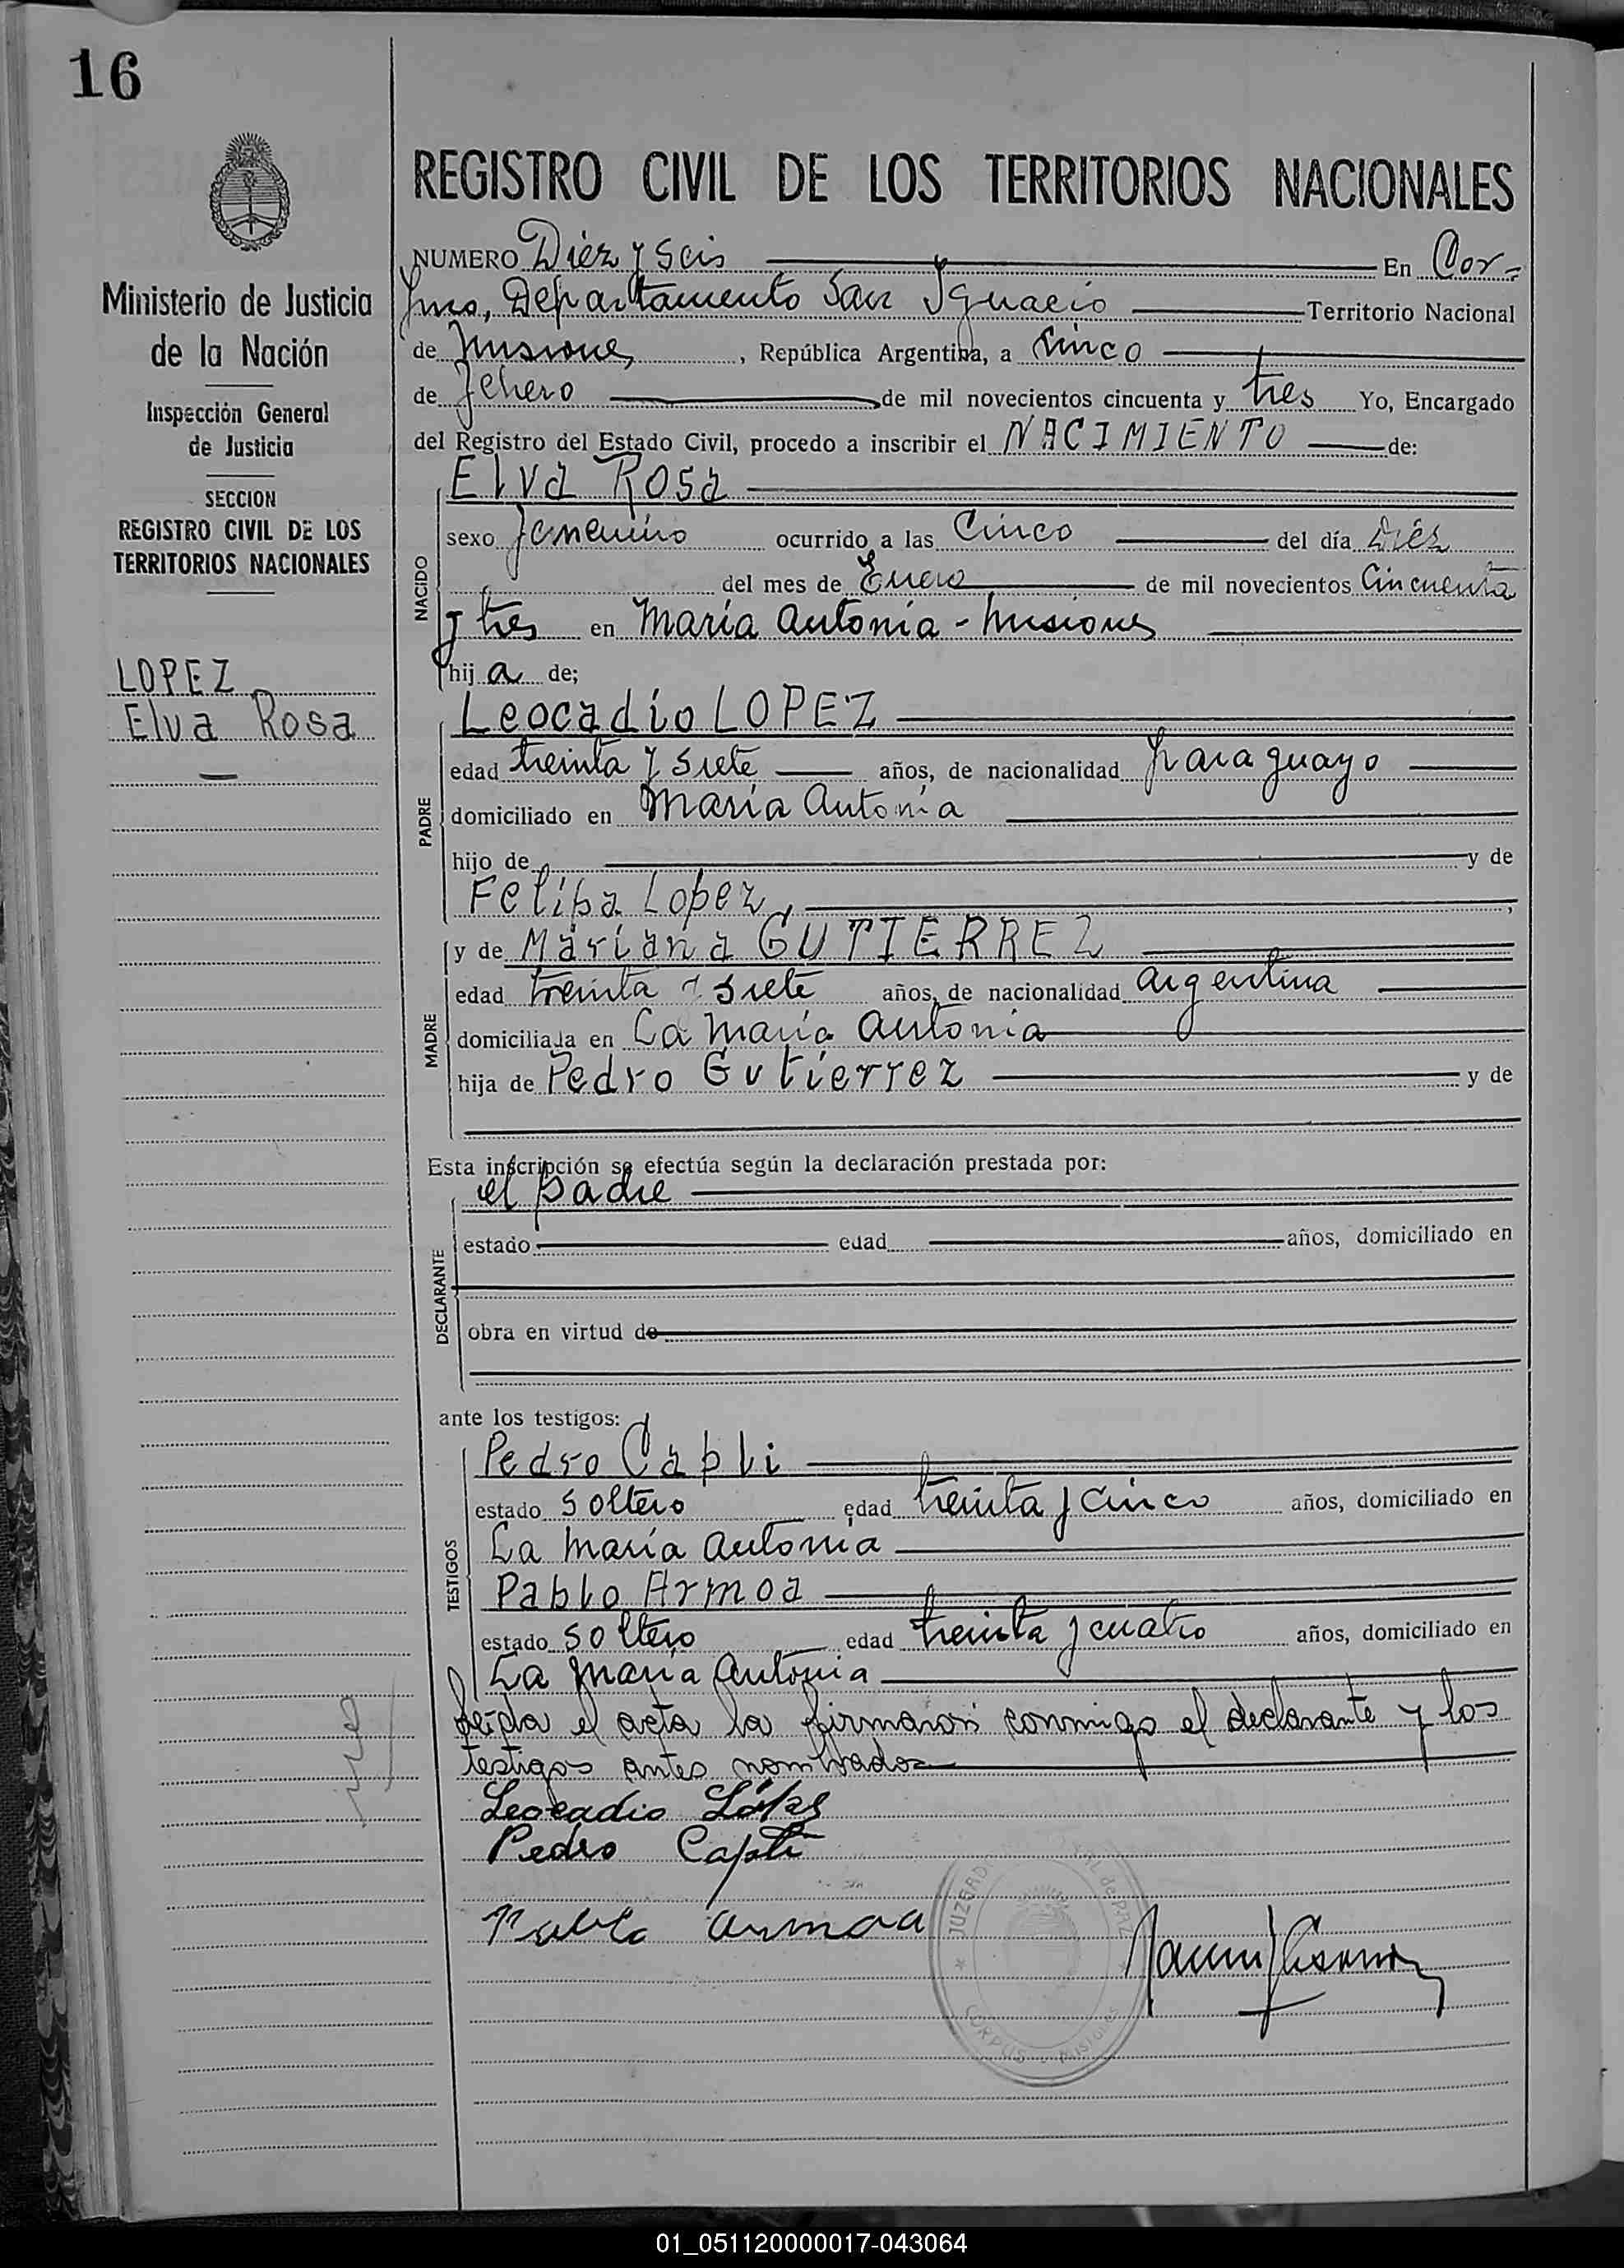 16
REGISTRO CIVIL DE LOS TERRITORIOS NACIONALES
Ministerio de Justicia
de la Nación
Inspección General
de Justicia
SECCION
REGISTRO CIVIL DE LOS
TERRITORIOS NACIONALES
LOPEZ
Elva Rosa
NUMERO Diez y Seis En Cor=
pus, Departamento San Ignacio Territorio Nacional
de Misiones, República Argentina, a Cinco
de Febrero de mil novecientos cincuenta y tres Yo, Encargado
del Registro del Estado Civil, procedo a inscribir el NACIMIENTO de:
NACIDO
Elva Rosa
sexo femenino ocurrido a las Cinco del día Diés
del mes de Enero de mil novecientos Cincuenta
y tres en María Antonia - Misiones
hij a de;
PADRE
Leocadio LOPEZ
edad treinta y siete años, de nacionalidad paraguayo
domiciliado en María Antonia
hijo de y de
Felipa Lopez,
MADRE
y de Mariana GUTIERREZ
edad treinta y siete años, de nacionalidad argentina
domiciliada en La María Antonia
hija de Pedro Gutierrez y de
Esta inscripción se efectúa según la declaración prestada por:
DECLARANTE
el padre
estado edad años, domiciliado en
obra en virtud de
ante los testigos:
TESTIGOS
Pedro Capli
estado soltero edad treinta y cinco años, domiciliado en
La María Antonia
Pablo Armoa
estado soltero edad treinta y cuatro años, domiciliado en
La María Antonia
leida el acta la firmaron conmigo el declarante y los
testigos antes nombrados
Leocadio López
Pedro
Pablo Armoa
JUZGADO DE PAZ
CORPUS - MISIONES
01_051120000017-043064